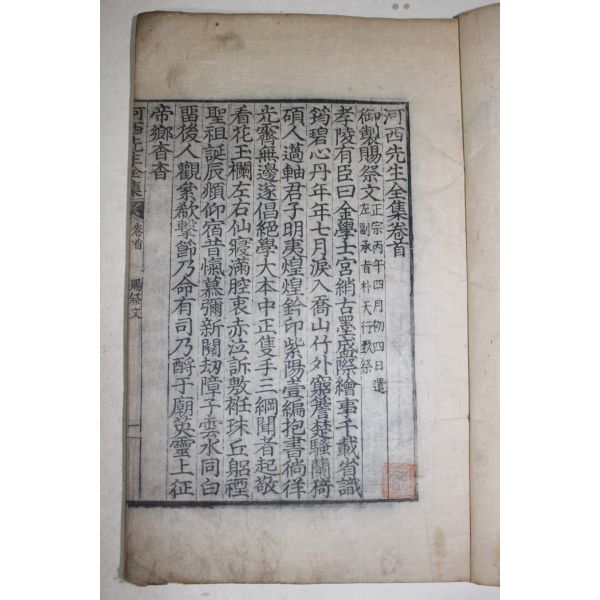 河西先生全集卷首
御製賜祭文 正宗丙午四月初四日遣
左副承旨朴天行致祭
孝陵有臣曰金學士宮綃古墨盛際繪事千載省識
筠碧心丹年年七月淚入喬山竹外窮簷楚騷蘭猗
碩人薖軸君子明夷煌煌鈐印紫陽壹編抱書徜徉
光霽無邊遂倡絕學大本中正隻手三綱聞者起敬
看花王欄左右仙寢滿腔衷赤泣訴敷衽珠丘躬禋
聖祖誕辰頫仰宿昔愾慕彌新閱劫障子雲水同白
留後人觀纍欷擊節乃命有司乃酹于廟英靈上征
帝鄉杳杳
河西先生全集 卷首 賜祭文 一